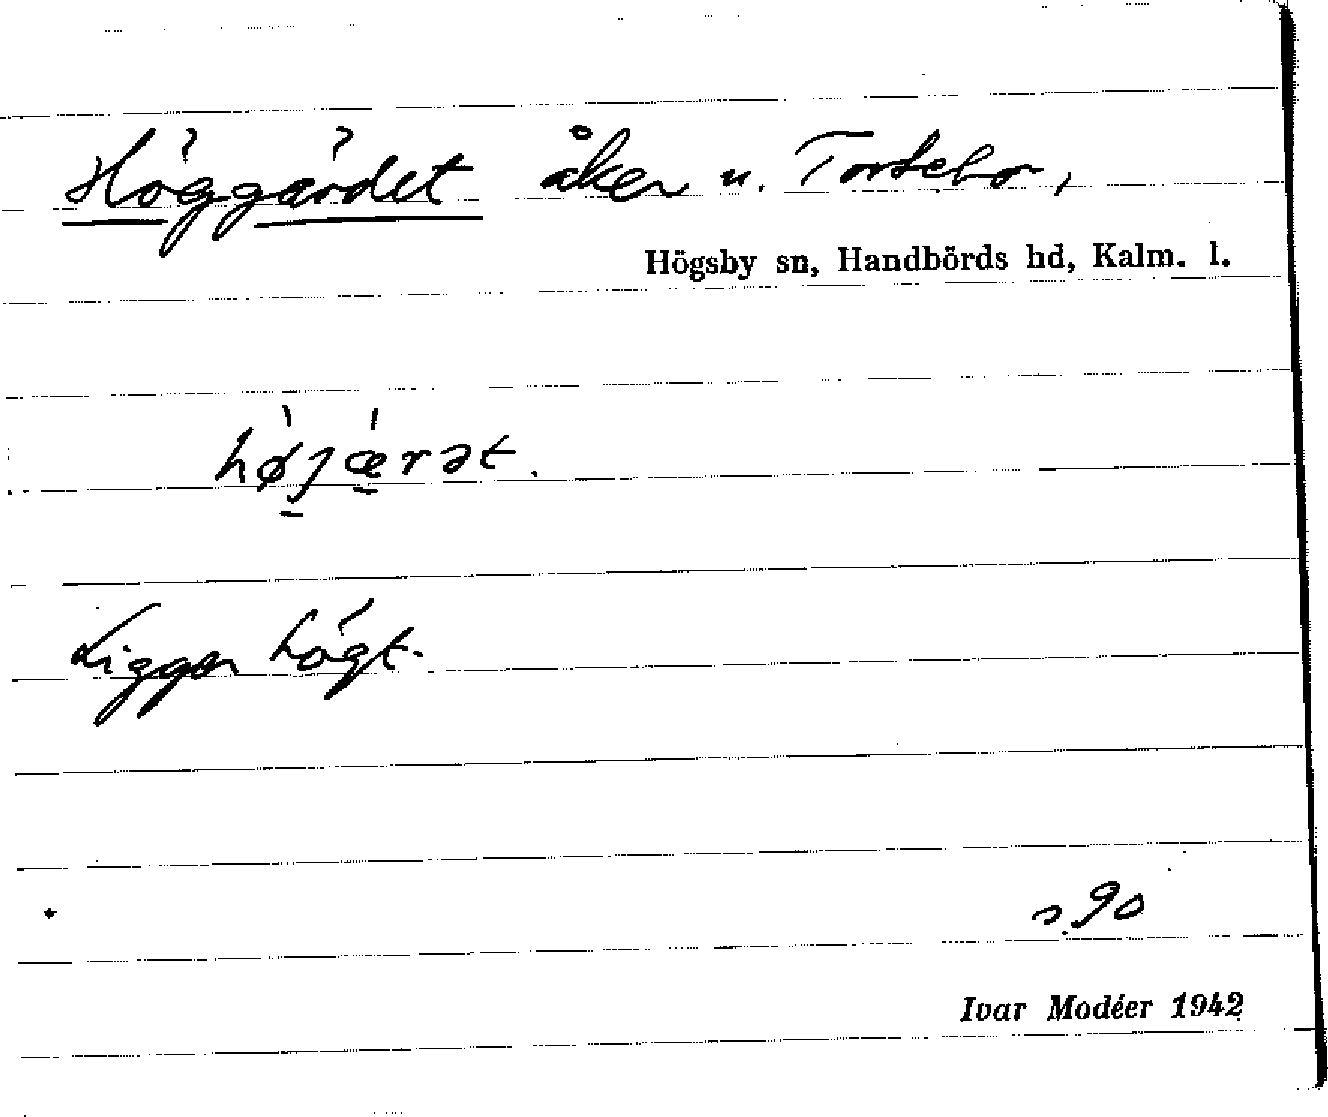 Höggärdet åker u. Tortebo,
Högsby sn, Handbörds hd, Kalm. l.
hø̀jæ̀rət.
Ligger högt.
s. 90
Ivar Modéer 1942